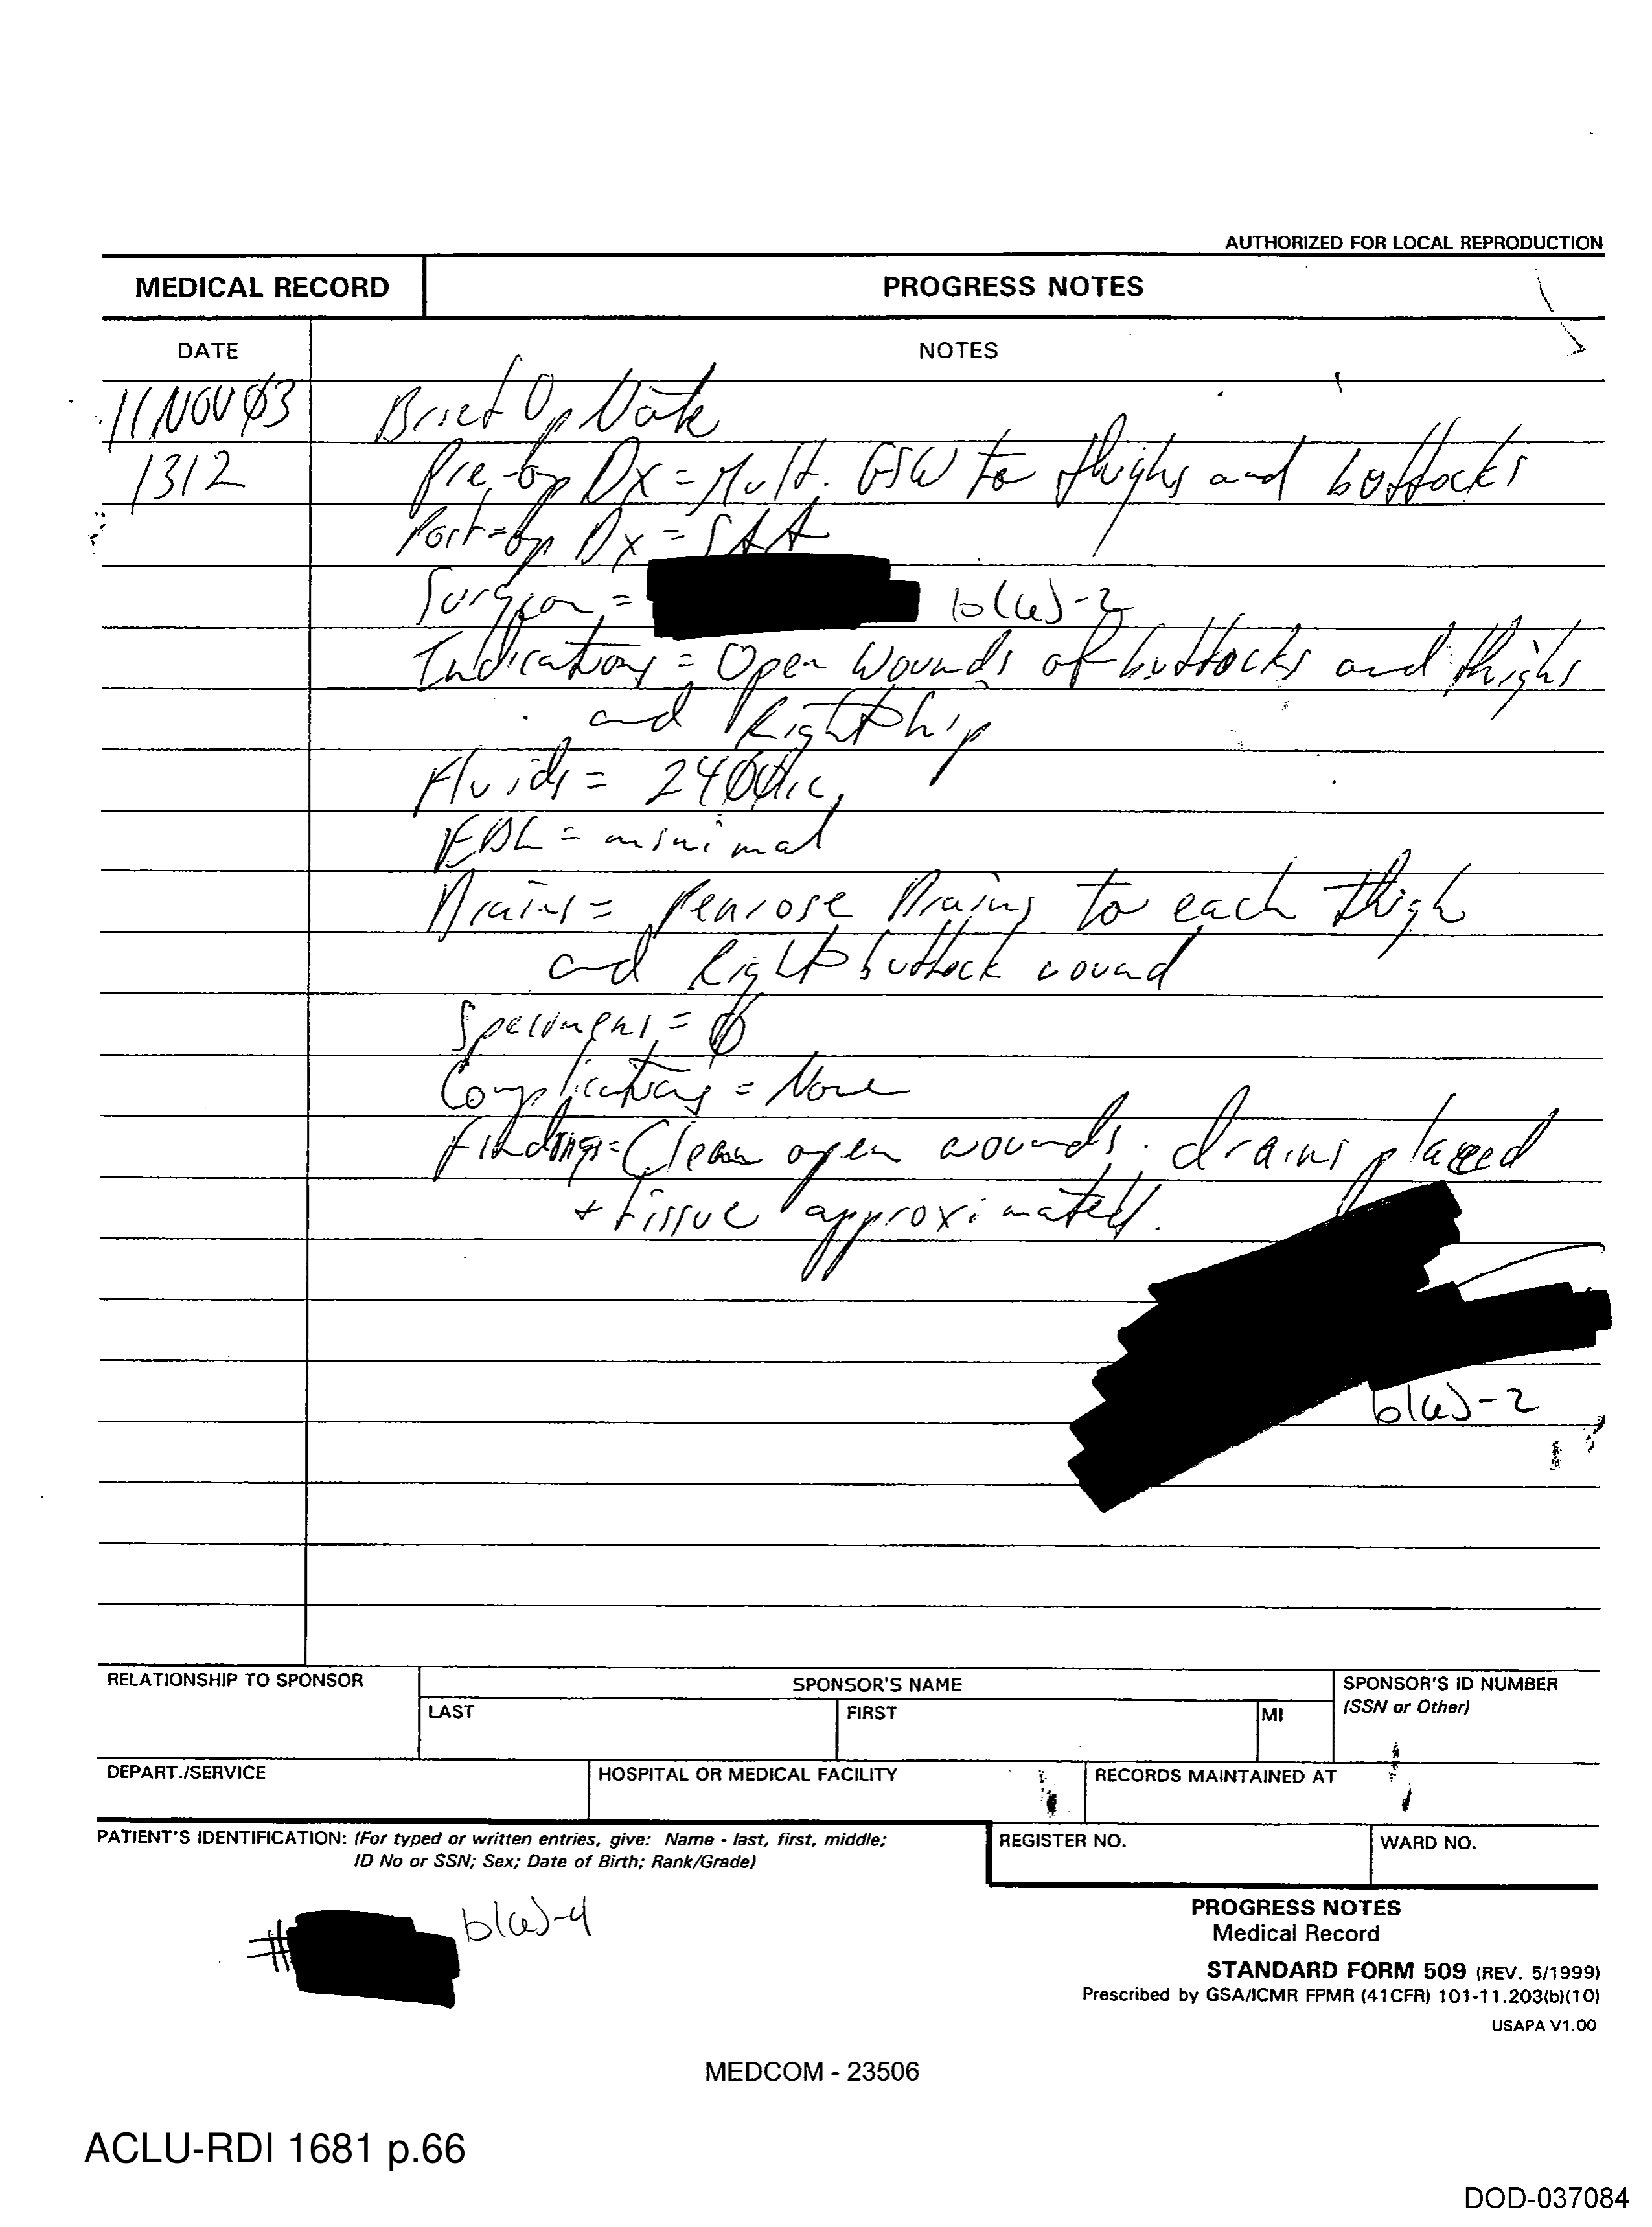 AUTHORIZED FOR LOCAL REPRODUCTION
MEDICAL RECORD PROGRESS NOTES
DATE NOTES
11 NOV 03 Brief Op Note
1312 Pre-op Dx = Mult. GSW to thighs and buttocks
Post-op Dx = SAA
Surgeon = b(6)-2
Indications = Open wounds of buttocks and thighs
and Right hip
Fluids = 2400cc
EBL = minimal
Drains = Penrose Drains to each thigh
and Right buttock wound
Specimens = 0
Complications = None
Findings = Clean open wounds. drains placed
+ tissue approximated.
b(6)-2
RELATIONSHIP TO SPONSOR SPONSOR'S NAME SPONSOR'S ID NUMBER
LAST FIRST MI (SSN or Other)
DEPART./SERVICE HOSPITAL OR MEDICAL FACILITY RECORDS MAINTAINED AT
PATIENT'S IDENTIFICATION: (For typed or written entries, give: Name - last, first, middle; REGISTER NO. WARD NO.
ID No or SSN; Sex; Date of Birth; Rank/Grade)
# b(6)-4
PROGRESS NOTES
Medical Record
STANDARD FORM 509 (REV. 5/1999)
Prescribed by GSA/ICMR FPMR (41CFR) 101-11.203(b)(10)
USAPA V1.00
MEDCOM - 23506
ACLU-RDI 1681 p.66
DOD-037084